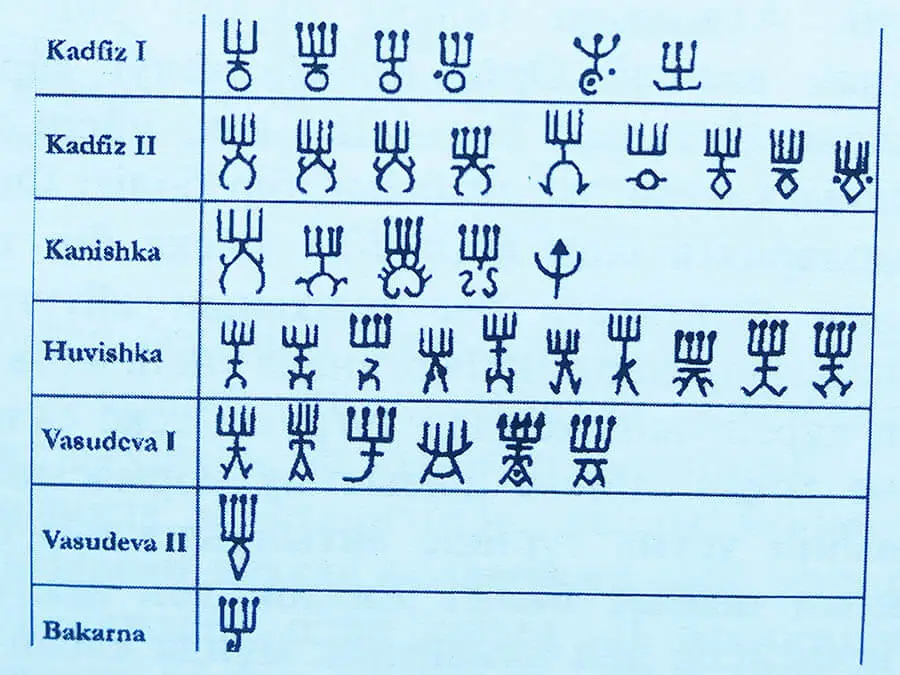 Kadfiz I
Kadfiz II
Kanishka
Huvishka
Vasudeva I
Vasudeva II
Bakarna